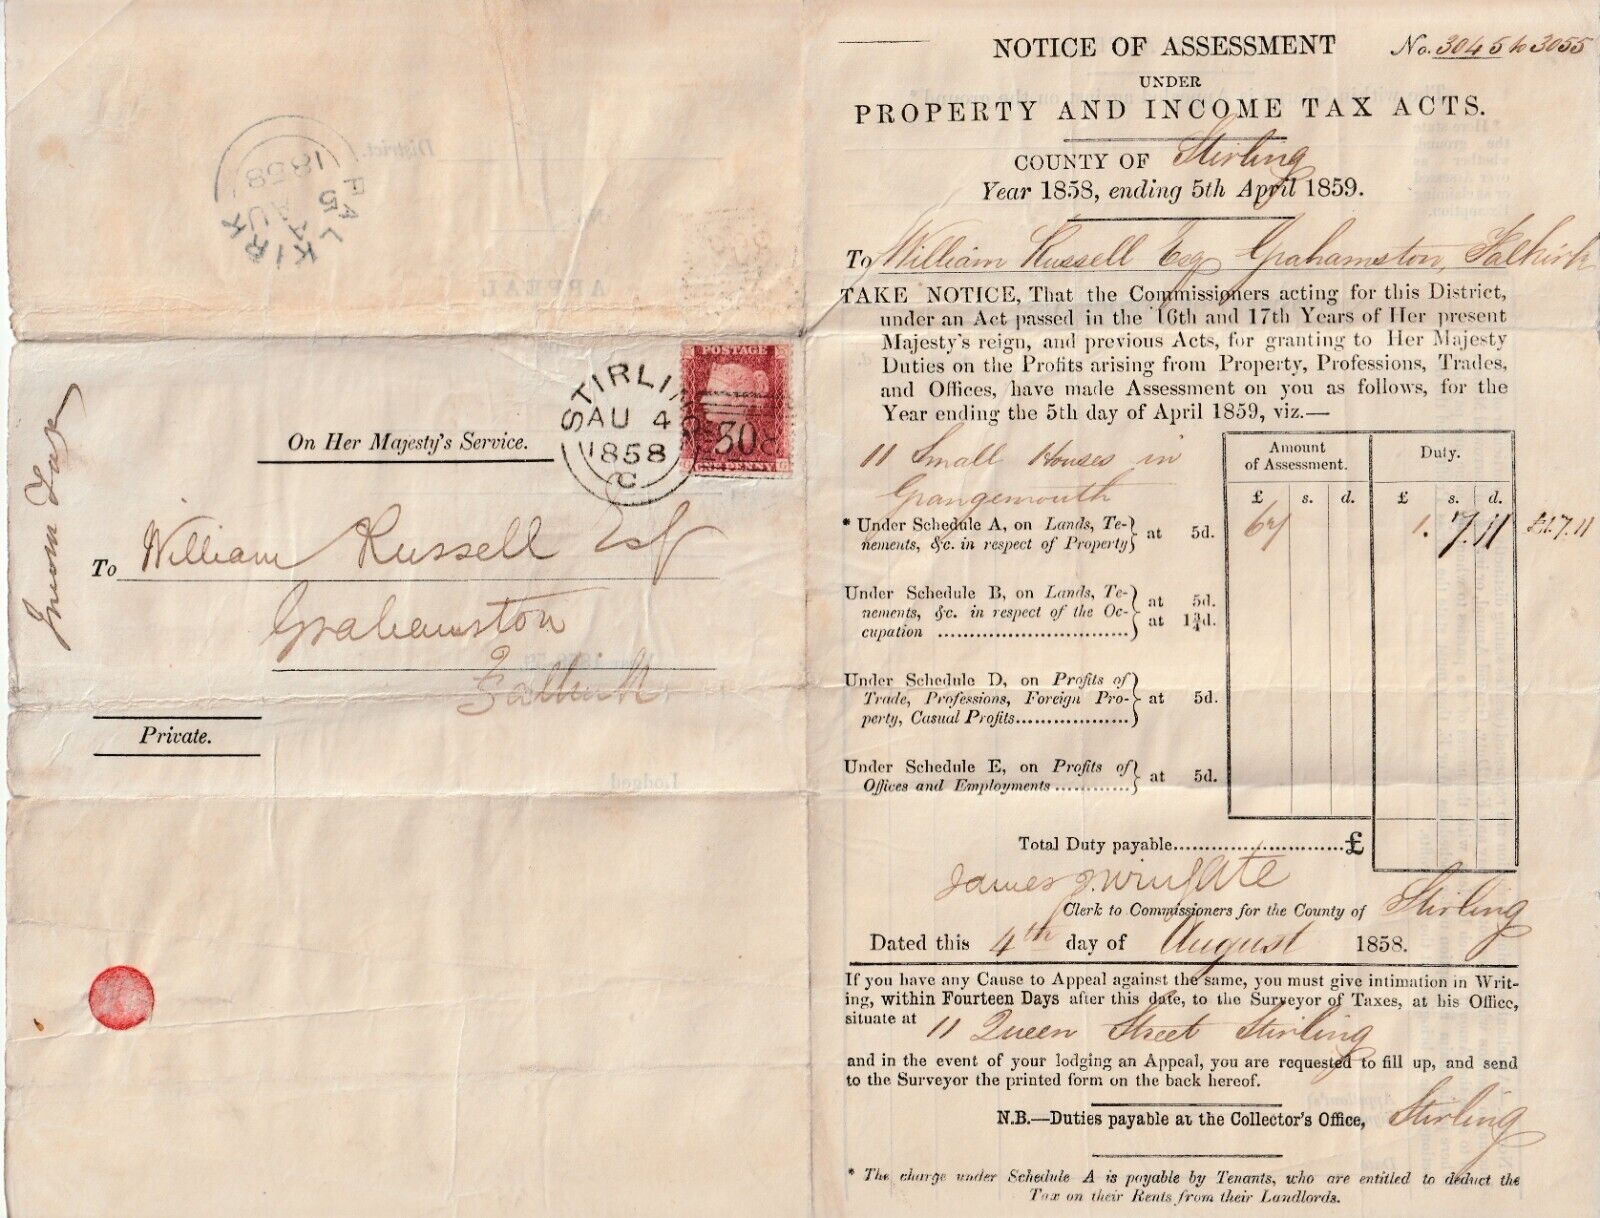 FALKIRK
AU
5
1858
Income Tax
On Her Majesty's Service.
STIRLING
AU 4
1858
C
POSTAGE
ONE PENNY
308
To William Russell Esqr
Grahamston
Falkirk
Private.
NOTICE OF ASSESSMENT No. 3045 to 3055
UNDER
PROPERTY AND INCOME TAX ACTS.
COUNTY OF Stirling
Year 1858, ending 5th April 1859.
To William Russell Esq Grahamston, Falkirk
TAKE NOTICE, That the Commissioners acting for this District,
under an Act passed in the 16th and 17th Years of Her present
Majesty's reign, and previous Acts, for granting to Her Majesty
Duties on the Profits arising from Property, Professions, Trades,
and Offices, have made Assessment on you as follows, for the
Year ending the 5th day of April 1859, viz.—
11 Small Houses in
Grangemouth
Amount of Assessment. Duty.
£ s. d. £ s. d.
* Under Schedule A, on Lands, Te-
nements, &c. in respect of Property} at 5d. 67 1. 7. 11 £1.7.11
Under Schedule B, on Lands, Te-
nements, &c. in respect of the Oc-
cupation .............................. } at 5d.
at 1¾d.
Under Schedule D, on Profits of
Trade, Professions, Foreign Pro-
perty, Casual Profits.................. } at 5d.
Under Schedule E, on Profits of
Offices and Employments ............ } at 5d.
Total Duty payable..........................£
James Wingate
Clerk to Commissioners for the County of Stirling
Dated this 4th day of August 1858.
If you have any Cause to Appeal against the same, you must give intimation in Writ-
ing, within Fourteen Days after this date, to the Surveyor of Taxes, at his Office,
situate at 11 Queen Street Stirling
and in the event of your lodging an Appeal, you are requested to fill up, and send
to the Surveyor the printed form on the back hereof.
N.B.—Duties payable at the Collector's Office, Stirling
* The charge under Schedule A is payable by Tenants, who are entitled to deduct the
Tax on their Rents from their Landlords.